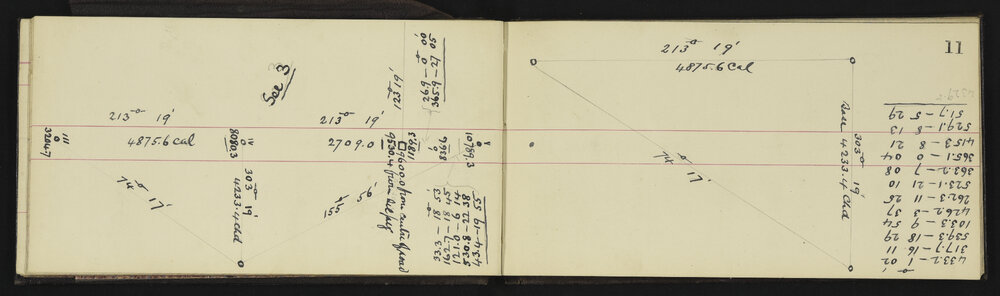 See 3
213° 19'
4875.6 cal
213° 19'
2709.0
III
3204.7
IV
8080.3
303° 19'
4233.4 chd
17'
155° 56'
123° 19'
26.9 – 0 00
365.9 – 27 05
9600.0 from centre of road
9530.4 from
1189.5
836.6
V
10789.3
33.3 – 18 53
162.7 – 18 45
121.0 – 6 14
530.8 – 22 38
43.4 – 19 55
11
213° 19'
4875.6 cal
303° 19'
Base 4233.4 chd
17'
433.2 – 1 02
317.7 – 16 11
539.3 – 18 29
103.3 – 9 54
426.2 – 3 37
262.3 – 11 25
523.1 – 21 10
363.2 – 7 08
365.1 – 0 04
415.3 – 8 21
529.1 – 8 13
51.7 – 5 29